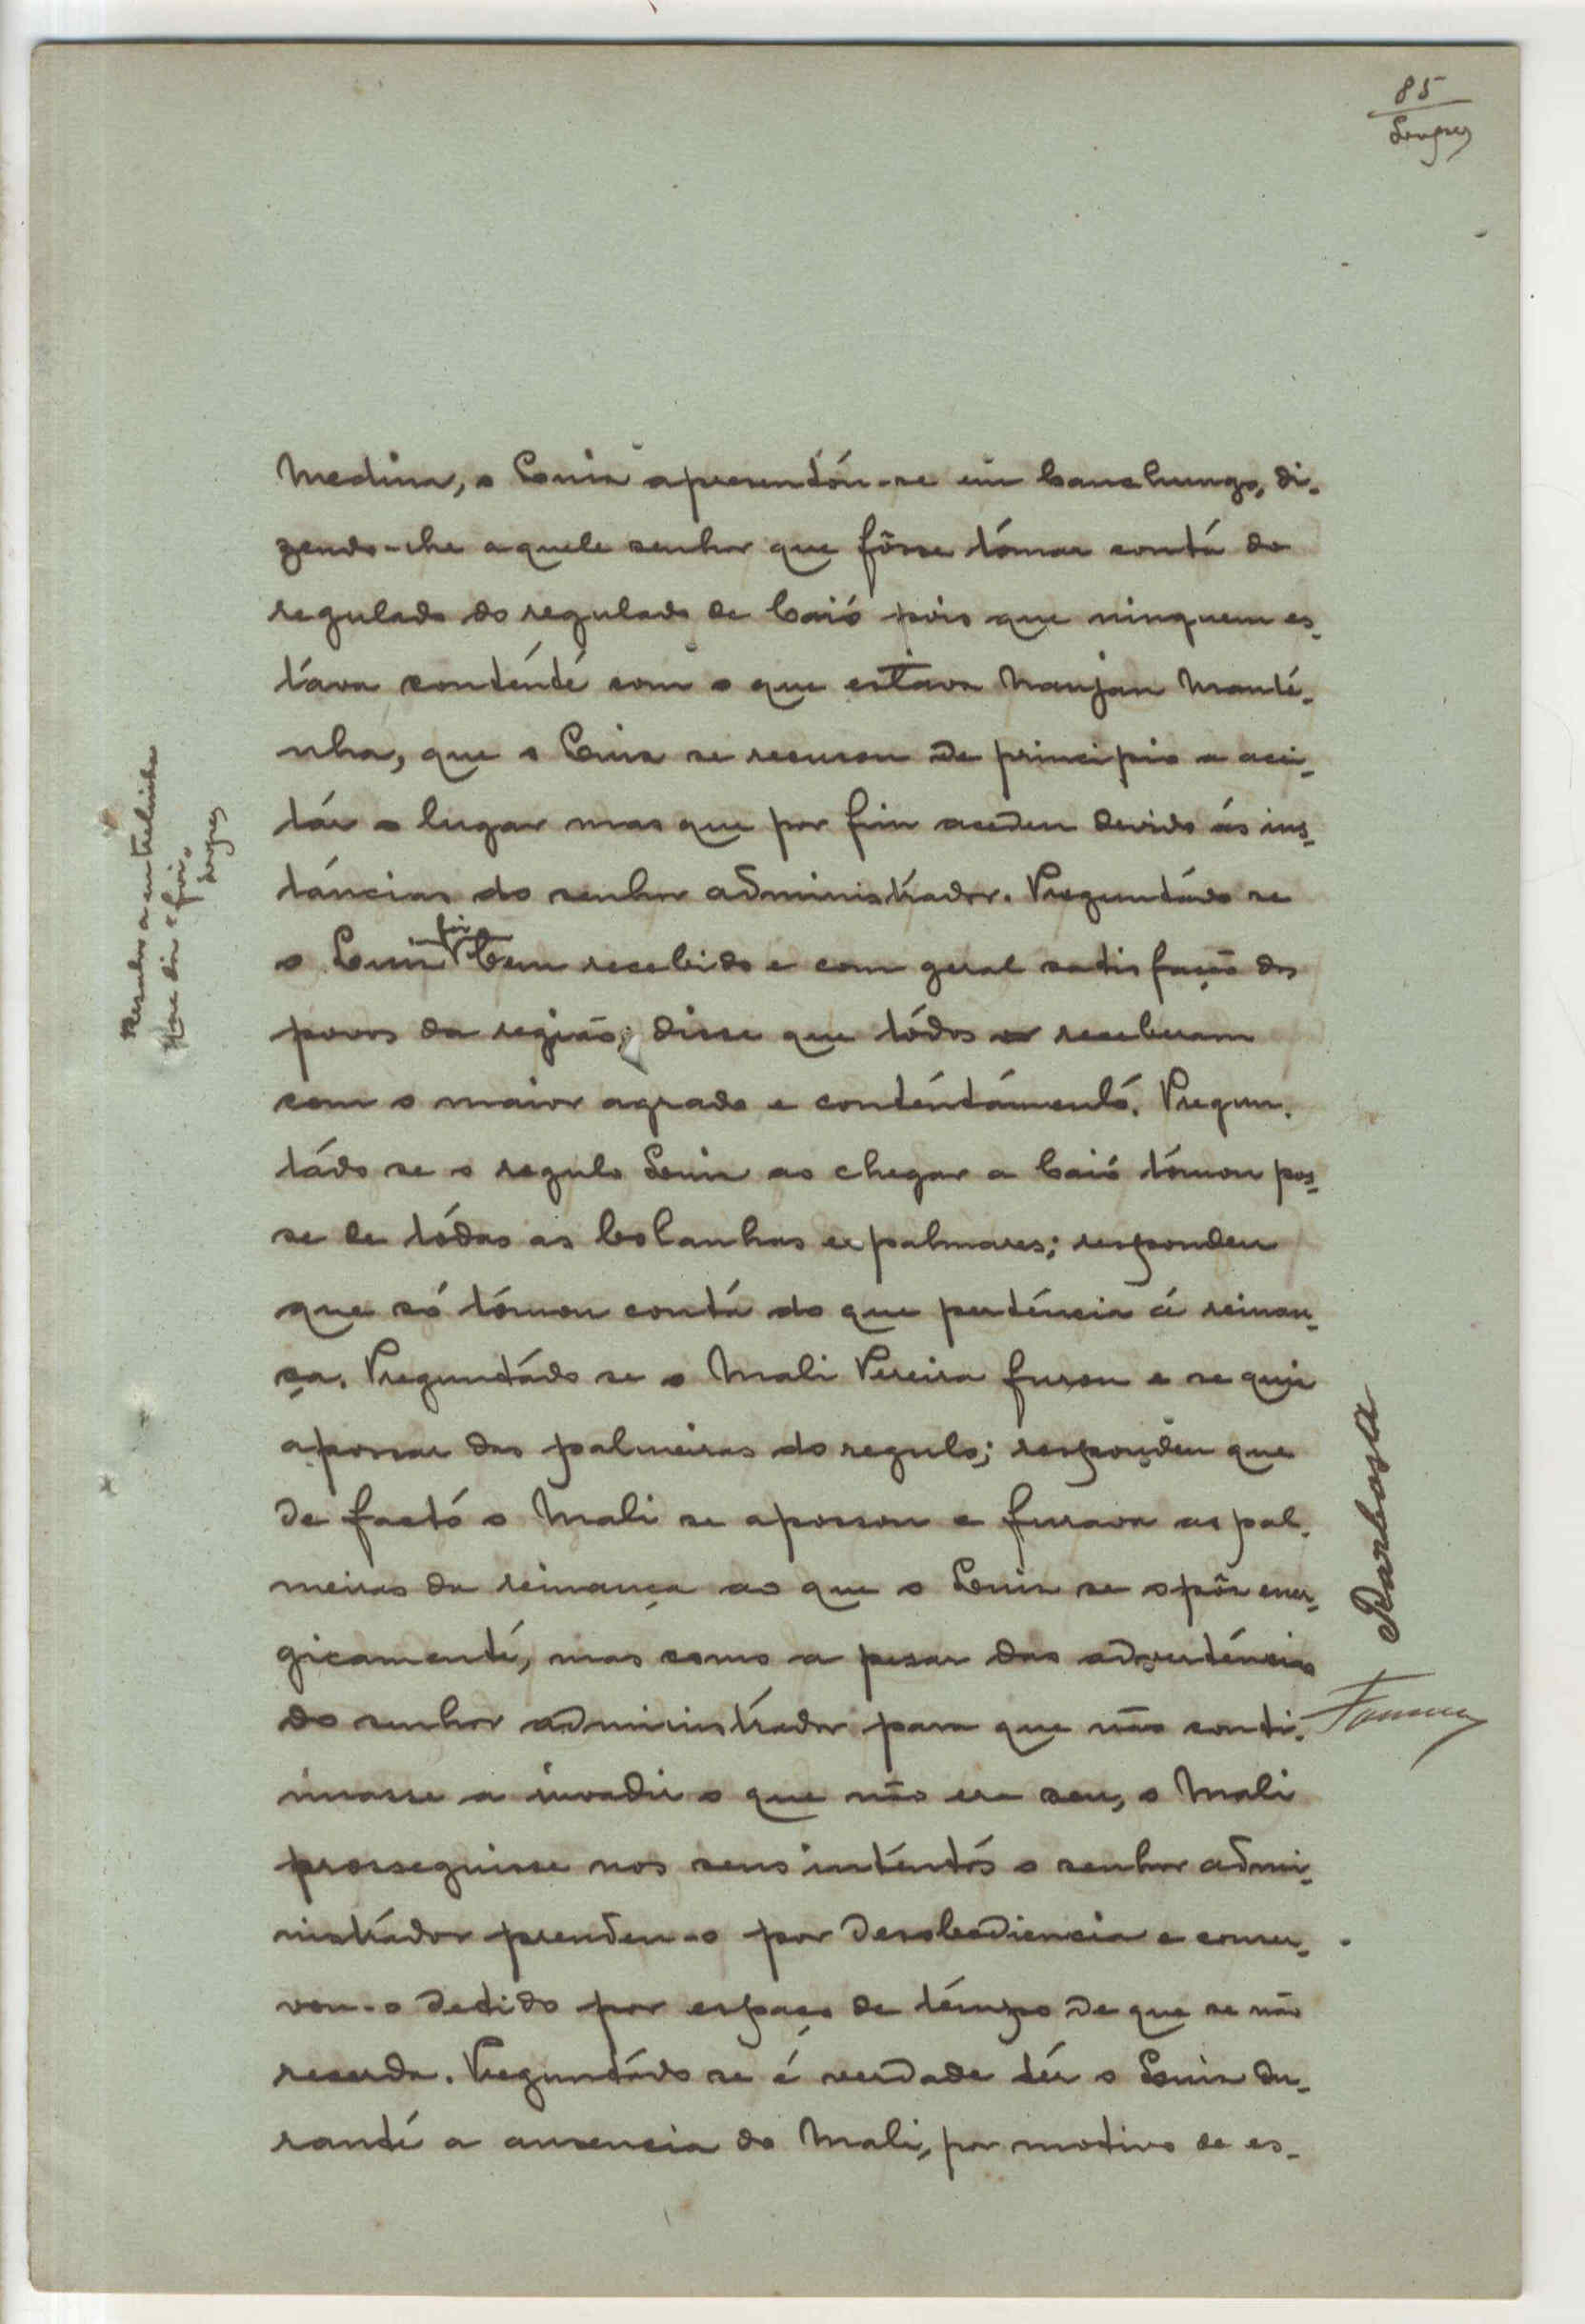 85
Medina, o Luis apresentou-se em Canchungo, di-
zendo-lhe aquele senhor que fôsse tomar conta do
regulado do regulado de Caió pois que ninguem es-
tava contente com o que estava Naujan Manté-
nha, que o Luis se recusou de principio a acei-
tár o lugar mas que por fim acedeu devido ás ins-
tancias do senhor administrador. Preguntádo se
o Luis foi bem recebido e com geral satisfação dos
povos da região; disse que tódos o receberam
com o maior agrado e contentamento. Pregun-
tádo se o regulo Luis ao chegar a Caió tomou pos-
se de tódas as bolanhas e palmares; respondeu
que só tomou conta do que pertencia á reinan-
ça. Preguntádo se o Mali Pereira furou e se quis
apossar das palmeiras do regulo; respondeu que
de facto o Mali se apossou e furava as pal-
meiras da reinança ao que o Luis se opôs ener-
gicamente, mas como a pesar das advertencias
do senhor administrador para que não conti-
nuasse a invadir o que não era seu, o Mali
prosseguisse nos seus intentos o senhor admi-
nistrador prendeu-o por desobediencia e conser-
vou-o detido por espaço de tempo de que se não
recorda. Preguntádo se é verdade tér o Luis du-
rante a ausencia do Mali, por motivo de es-
Resalvo a entrelinha
que diz "foi".
Barbosa